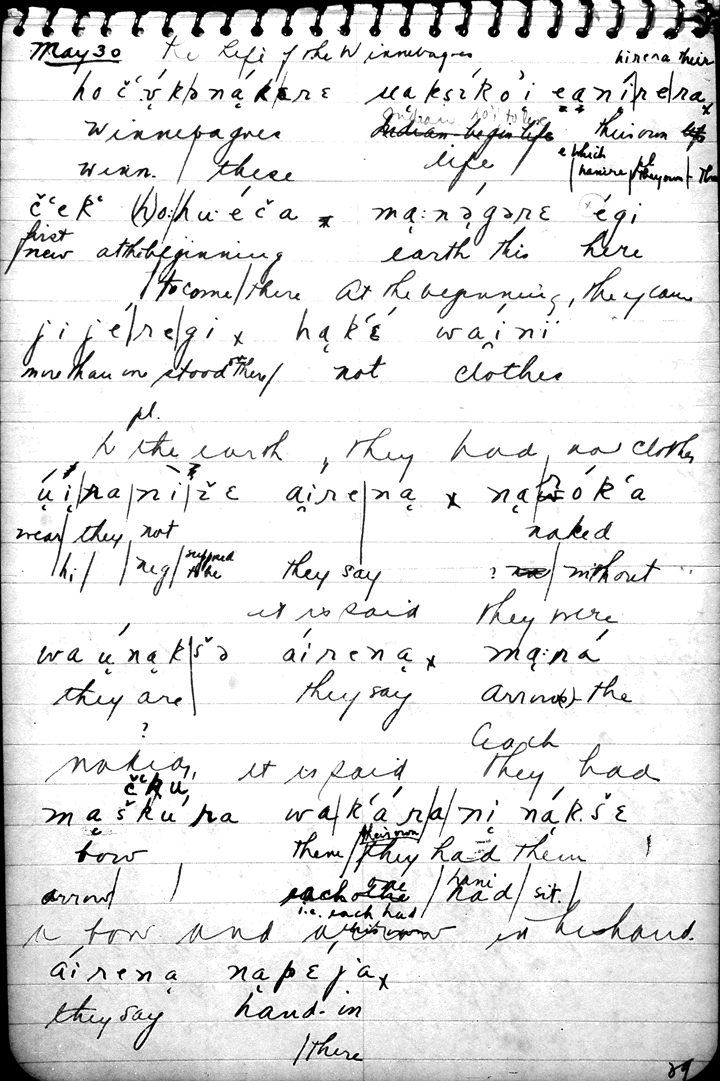 May 30 The Life of the Winnebagoes
hirera their
hoč'ų́kǝną́kǝrɛ ųąkšík'ó'i eanį́/re/ra x
Winnebagoes Indian begin life their own life
winn. / these life e which / hanire / pl. they own
č'ek' (h)o:/hu:éča x mą:nǝ́gǝrɛ égi
first
new at the beginning earth this here
/ to come / there At the beginning, they came
jijé/re/gi x hąk'ɛ́ waíni
more than one stood there / not clothes
pl.
to the earth, they had no clothes
ų́į/ra/nì/žɛ áire/ną x ną
wear / they not naked
hi / / neg / supposed to be they say ? / without
it is said they were
waų́nąk/šǝ áireną x mą:ná
they are / they say arrow(s) - the
? Each
naked, it is said they had
č'ku
mąškú'ra wa/k'ára/nį nák.šɛ
bow them / they had them
their own
arrow / / had / sit. /
hani
i.e. each had his own
a bow and arrow in his hand.
áireną nąpɛ́ja x
they say hand-in
/ there
29